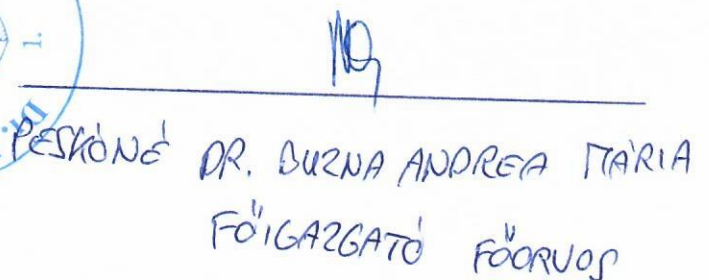 1.
PESKÓNÉ DR. BUZNA ANDREA MÁRIA
FŐIGAZGATÓ FŐORVOS